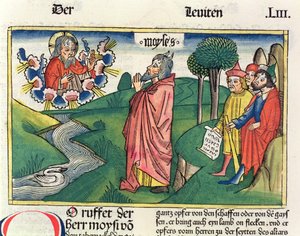 Der Leviten LIII.
moyses
O ruffet der
herr moysi võ
gantz opfer von den schaffen oder von de gays
sen. er bring auch eyn lamb on flecken. vnd er
opfers vorm herren zu der seyten des altars